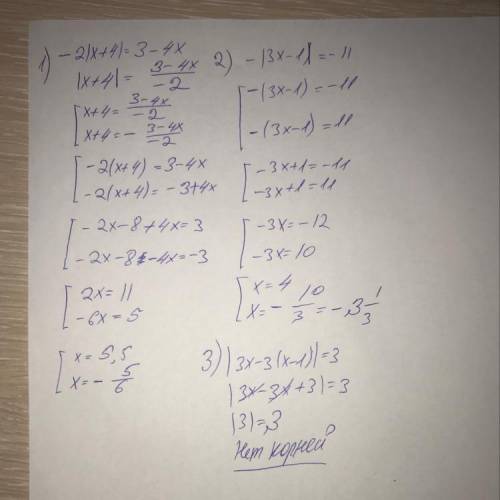 1) -2|x+4|=3-4x
|x+4|= (3-4x)/(-2)
[ x+4= (3-4x)/(-2)
x+4=- (3-4x)/(-2)
[ -2(x+4)=3-4x
-2(x+4)=-3+4x
[ -2x-8+4x=3
-2x-8-4x=-3
[ 2x=11
-6x=5
[ x=5,5
x=- 5/6
2) -|3x-1|=-11
[ -(3x-1)=-11
-(3x-1)=11
[ -3x+1=-11
-3x+1=11
[ -3x=-12
-3x=10
[ x=4
x=- 10/3 =-3 1/3
3) |3x-3(x-1)|=3
|3x-3x+3|=3
|3|=3
Нет корней